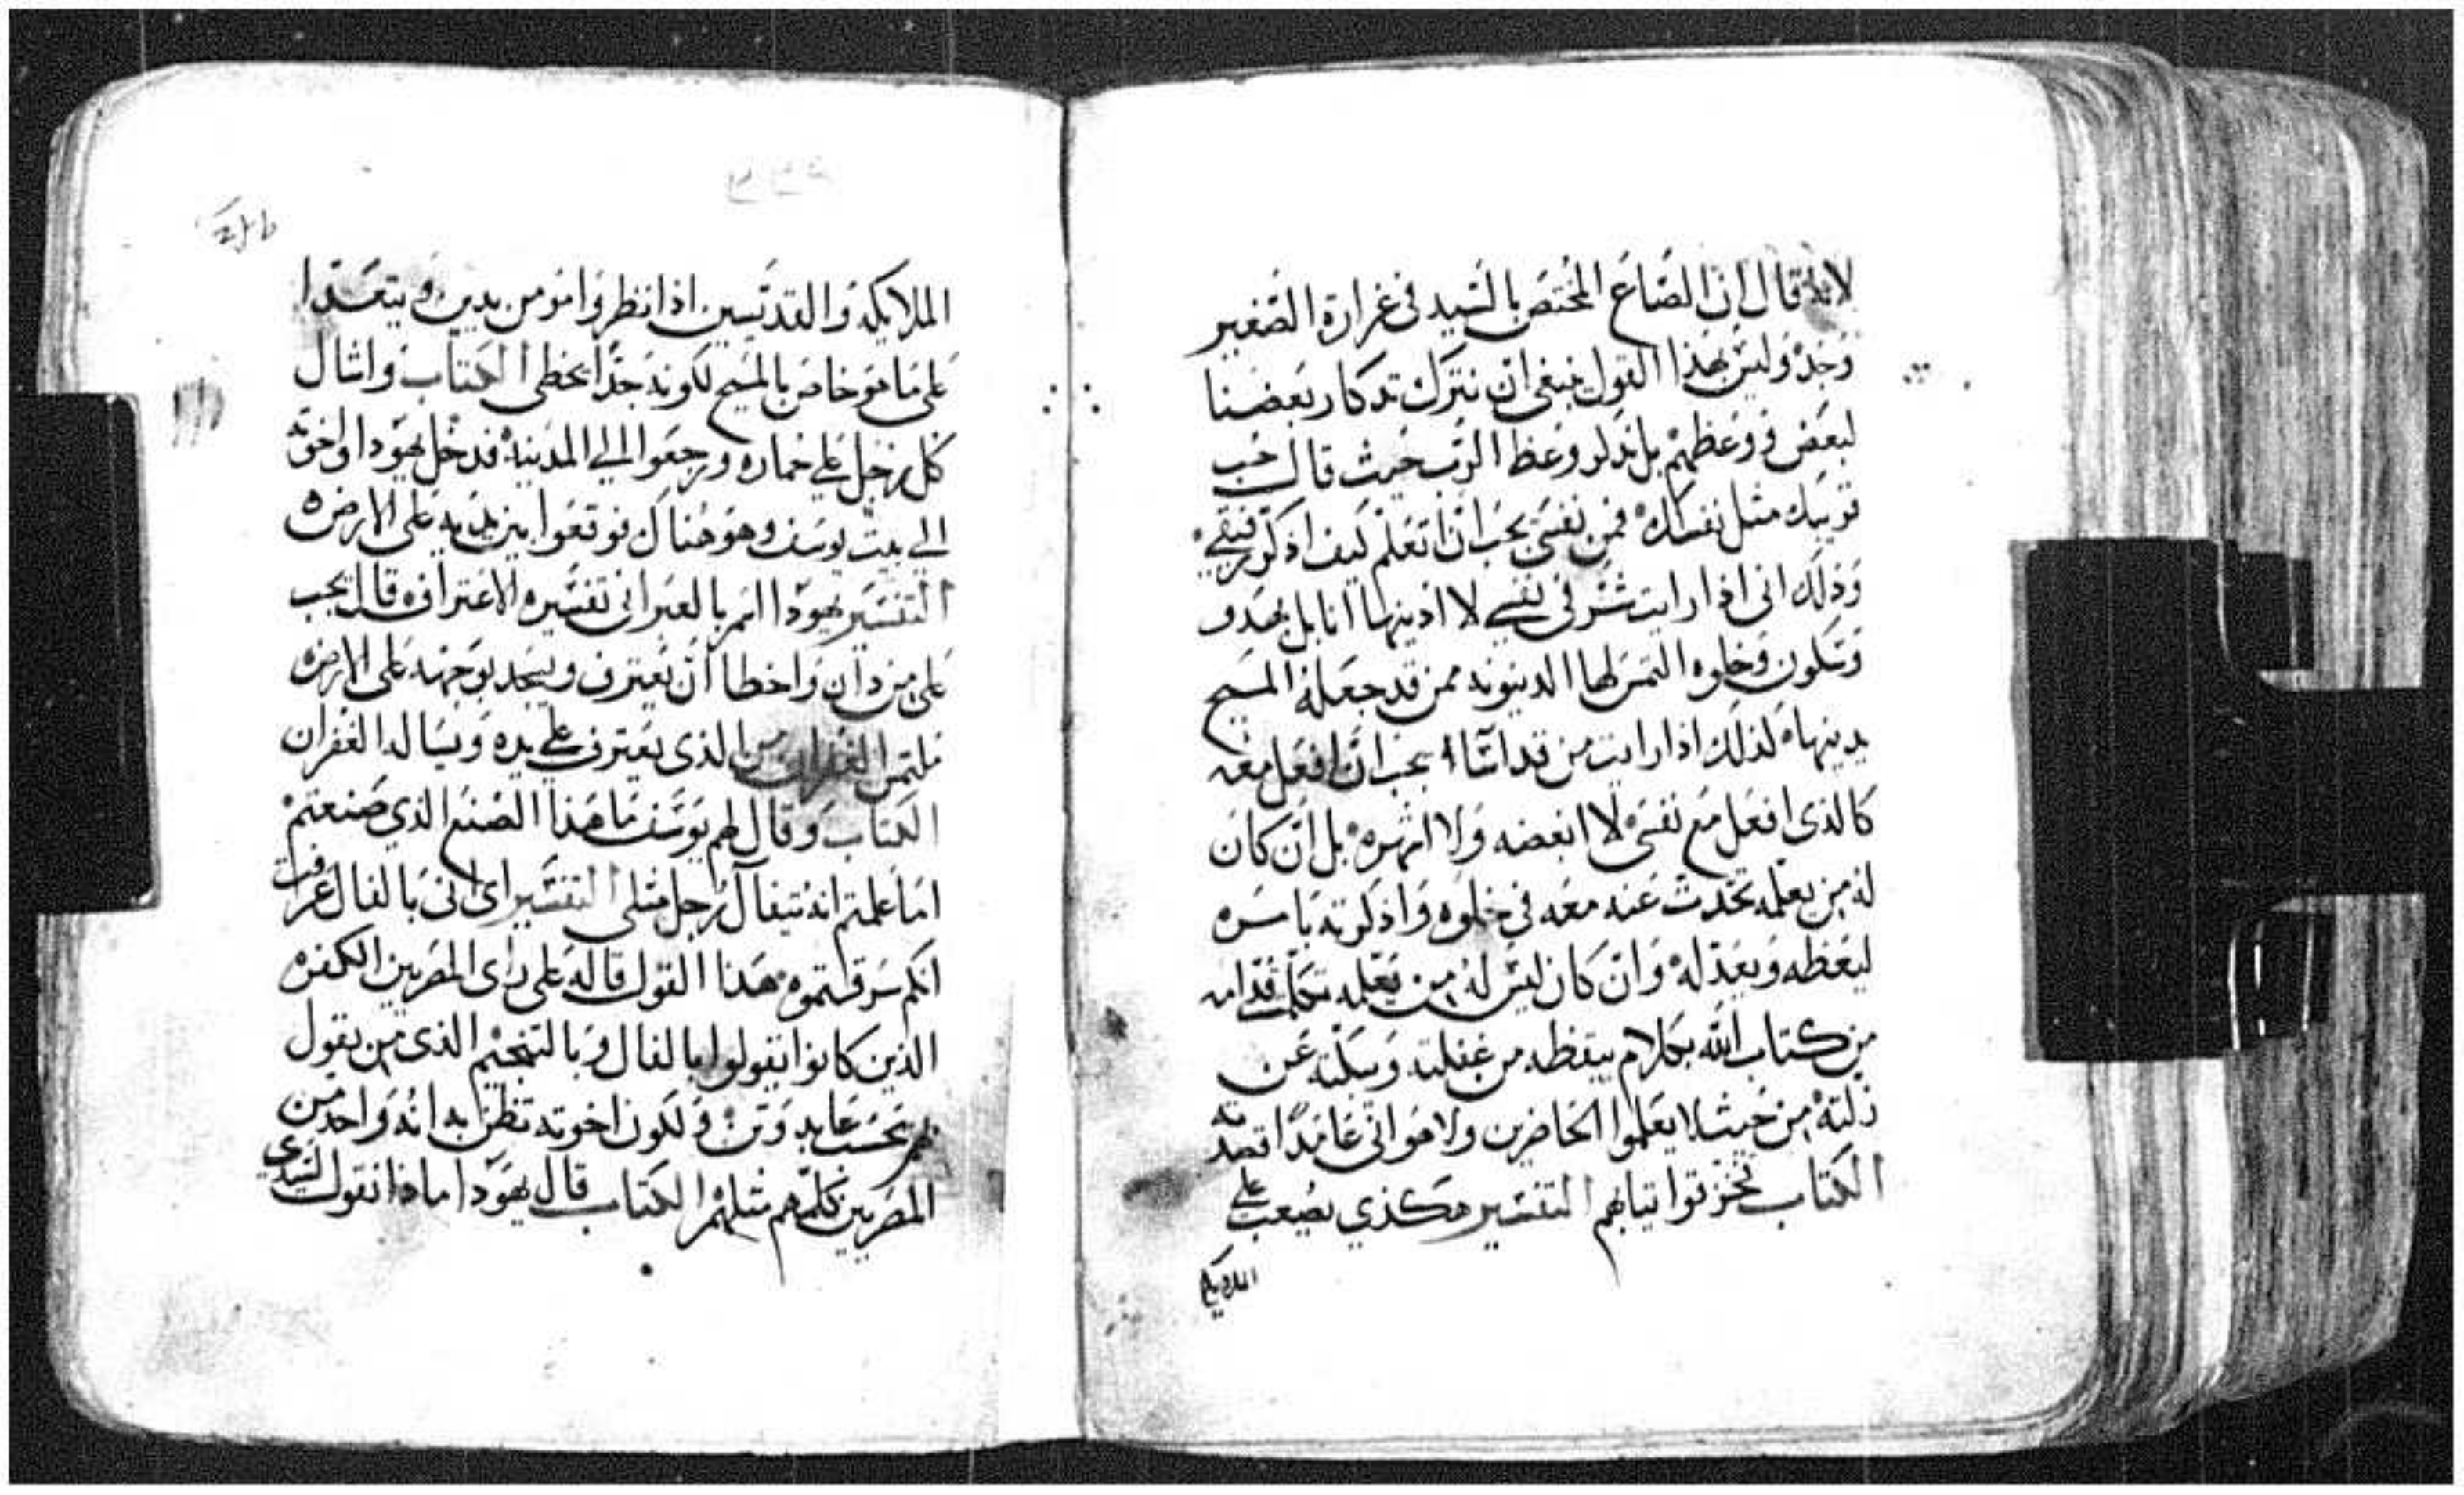 لانه قال ان الصَاعَ المختصَ بالسَيد فى غرارة الصَغير
وَجدْ وَليسَ بهذا القول ينبغى ان نترك تدكار بَعضنا
لبعَض ووعَظهمْ بل ندلر وعَظ الرَب حَيث قال حَب
قريبك مثل نفسَك فمن نفسَى يجَب ان اتعَلم كيف اذكر رفيقي
وَذلك انى اذا رايت شرْ فى نفسي لا ادينها انا بل بهدو
وَسَكون وَخلوه التمسَ لها الدينونه ممن قد جعَله المسَيح
يدينها لذلك اذا رايت من قد اسَاا يجَب ان افعَل معَه
كالذى افعَل مَع نفسَى لا ابغضه وَلا انهره بل ان كانَ
له من يعَلمه تحَدثت عَنه معَه فى خلوه وَاذكرته بامسَره
ليعَظه وَيعَدله وَان كان ليسَ له من يعَلمه تكلمت قدامه
من كتاب الله بكلام ييقظه من غفلته وَيبكته عَن
زلته من حَيث لا يعَلموا الحَاضرين ولا هوَ انى عَامدًا قصدته
الكتاب فخزقوا تيابهم التفسَير هكذي يصَعب علي
الملايكه
الملايكه وَالقديسَين اذا نظروَا مؤمن بدين وَيتعَدا
عَلى مَا هوَ خاصَ بالمسَيح لكونه جدًا يخطى الكتاب وَاشال
كل رَجل علي حَماره ورجعَوا الي المدَينة فدخل يهوَدا واخوته
الي بيت يوسَف وهوَ هناك فوقعَوا بين يديه عَلى الارضَ
التفسَير يهوَدا اسَم بالعبرانى تفسَيره الاعتراف قال يجب
عَلى من دان وَاخطا ان يعَترف ويسَجد بوَجهه عَلى الارضَ
ملتمسَ الغفران من الذى يعَترف علي يده وَيسَاله الغفران
الكتاب وَقال لهم يوَسَف مَا هَذا الصَنع الذي صَنعتمْ
امَا عَلمتم انه يتفاَل رَجل مثلى التفسَير اى انى بالفال عَرفت
انكم سَرقتموه هَذا القول قاله عَلى راى المصَريين الكفره
الذين كانوا يقولوا بالفال وَبالتنجيم الذى من يقول
بهم يحَسَب عَابد وَتن وَلكون اخوته تظن به انه وَاحد من
المصَريين كلمهم مثلهمْ الكتاب قال يهوَدا ماذا نقول لسَيدي